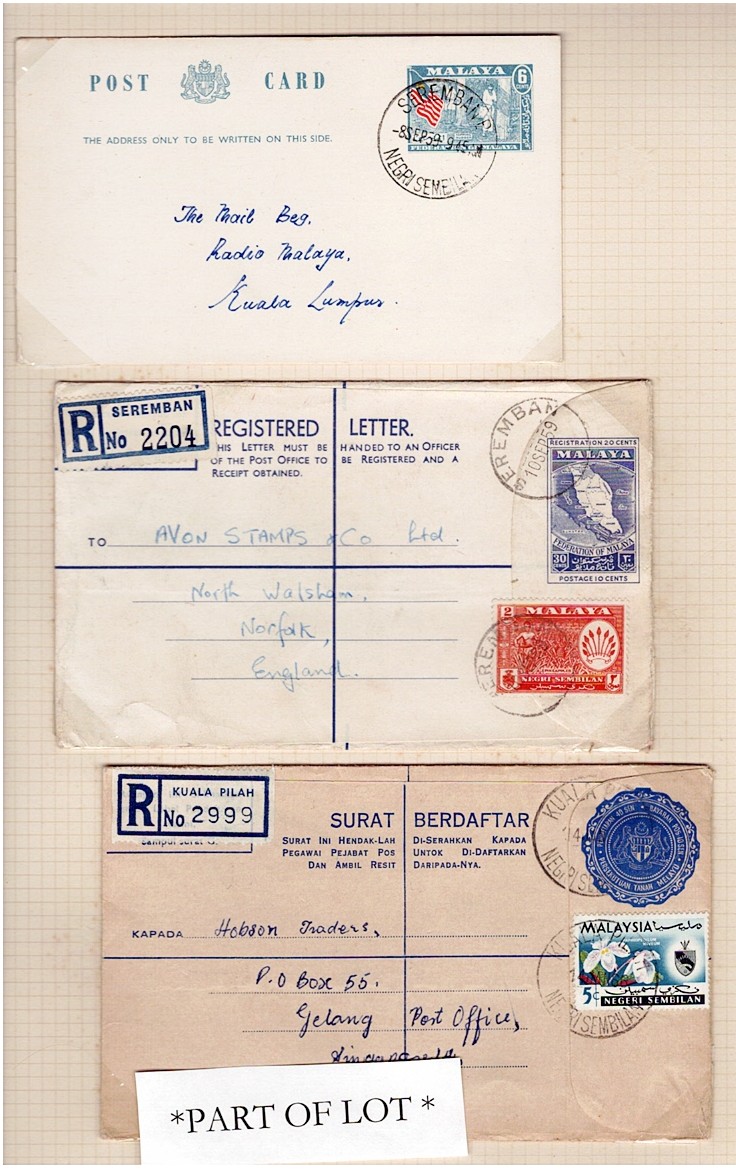 POST CARD
THE ADDRESS ONLY TO BE WRITTEN ON THIS SIDE.
MALAYA 6 CENTS
SEREMBAN
-8SEP59 945
NEGRI SEMBIL
The Mail Beg.
Radio Malaya,
Kuala Lumpur.
R SEREMBAN
No 2204
REGISTERED LETTER.
HIS LETTER MUST BE HANDED TO AN OFFICER
OF THE POST OFFICE TO BE REGISTERED AND A
RECEIPT OBTAINED.
SEREMBAN
10SEP59
REGISTRATION 20 CENTS
MALAYA
FEDERATION OF MALAYA
30 CENTS
POSTAGE 10 CENTS
TO AVON STAMPS & Co Ltd.
North Walsham,
Norfolk,
England.
2 MALAYA
NEGRI SEMBILAN
R KUALA PILAH
No 2999
SURAT BERDAFTAR
SURAT INI HENDAK-LAH DI-SERAHKAN KAPADA
PEGAWAI PEJABAT POS UNTOK DI-DAFTARKAN
DAN AMBIL RESIT DARIPADA-NYA.
KUALA PI
NEGRI SE
PERSEKUTUAN TANAH MELAYU
KAPADA Hobson Traders,
P.O Box 55.
Gelang Post Office,
MALAYSIA مليسيا
5c
NEGERI SEMBILAN
NEGRI SEMBILAN
*PART OF LOT *